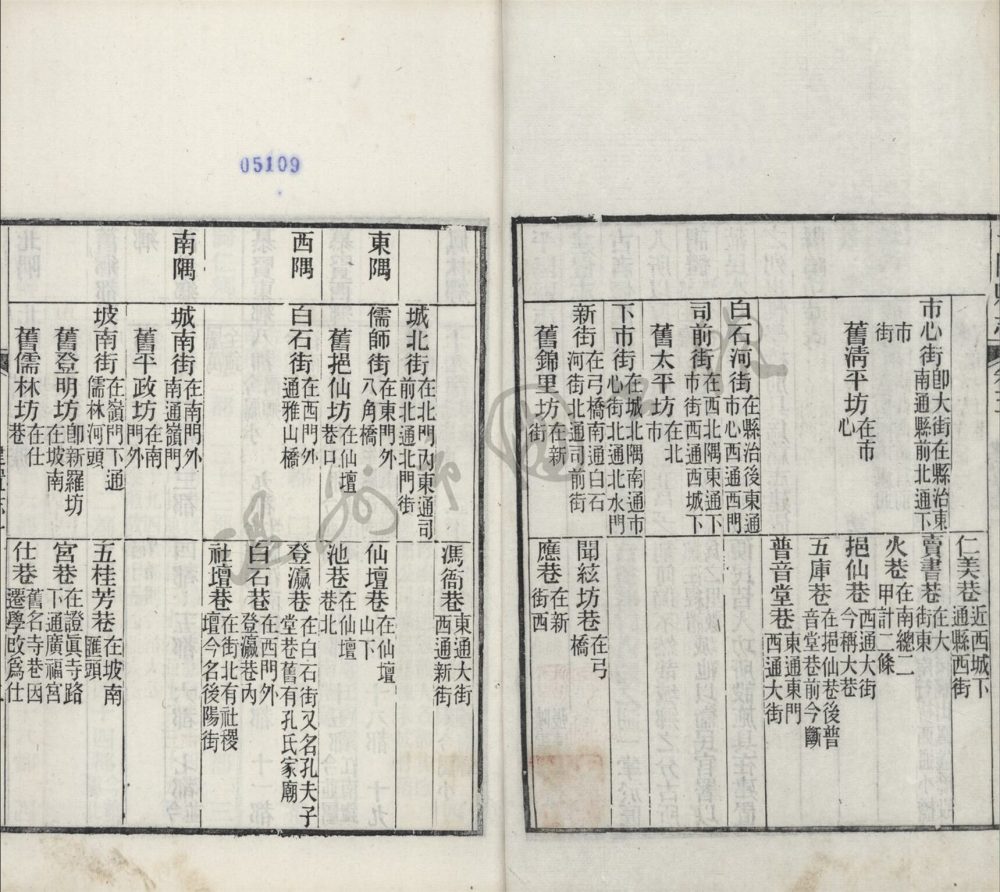 仁美巷 近西城下通縣西街
市心街 卽大街在縣治東南通縣前北通下市街
賣書巷 在大街東
火巷 在南總二甲計二條
舊淸平坊 在市心
挹仙巷 西通大街今稱大巷
五庫巷 在挹仙巷後普音堂巷前今斷
普音堂巷 東通東門西通大街
白石河街 在縣治後東通市心西通西門
司前街 在西北隅東通下市街西通西城下
舊太平坊 在北市
下市街 在城北隅南通市心街北通北水門
新街 在弓橋南通白石河街北通司前街
聞絃坊巷 在弓橋
舊錦里坊 在新街
應巷 在新街西
05109
馮衙巷 東通大街西通新街
城北街 在北門內東通司前北通北門街
東隅
儒師街 在東門外八角橋
仙壇巷 在仙壇山下
舊挹仙坊 在仙壇巷口
池巷 在仙壇巷北
西隅
白石街 在西門外通雅山橋
登瀛巷 在白石街又名孔夫子堂巷舊有孔氏家廟
白石巷 在西門外登瀛巷內
社壇巷 在街北有社稷壇今名後陽街
南隅
城南街 在南門外南通嶺門
舊平政坊 在南門外
坡南街 在嶺門下通儒林河頭
五桂芳巷 在坡南匯頭
舊登明坊 在坡南卽新羅坊
宮巷 在證眞寺路下通廣福宮
舊儒林坊 在仕巷
仕巷 舊名寺巷因遷學改爲仕